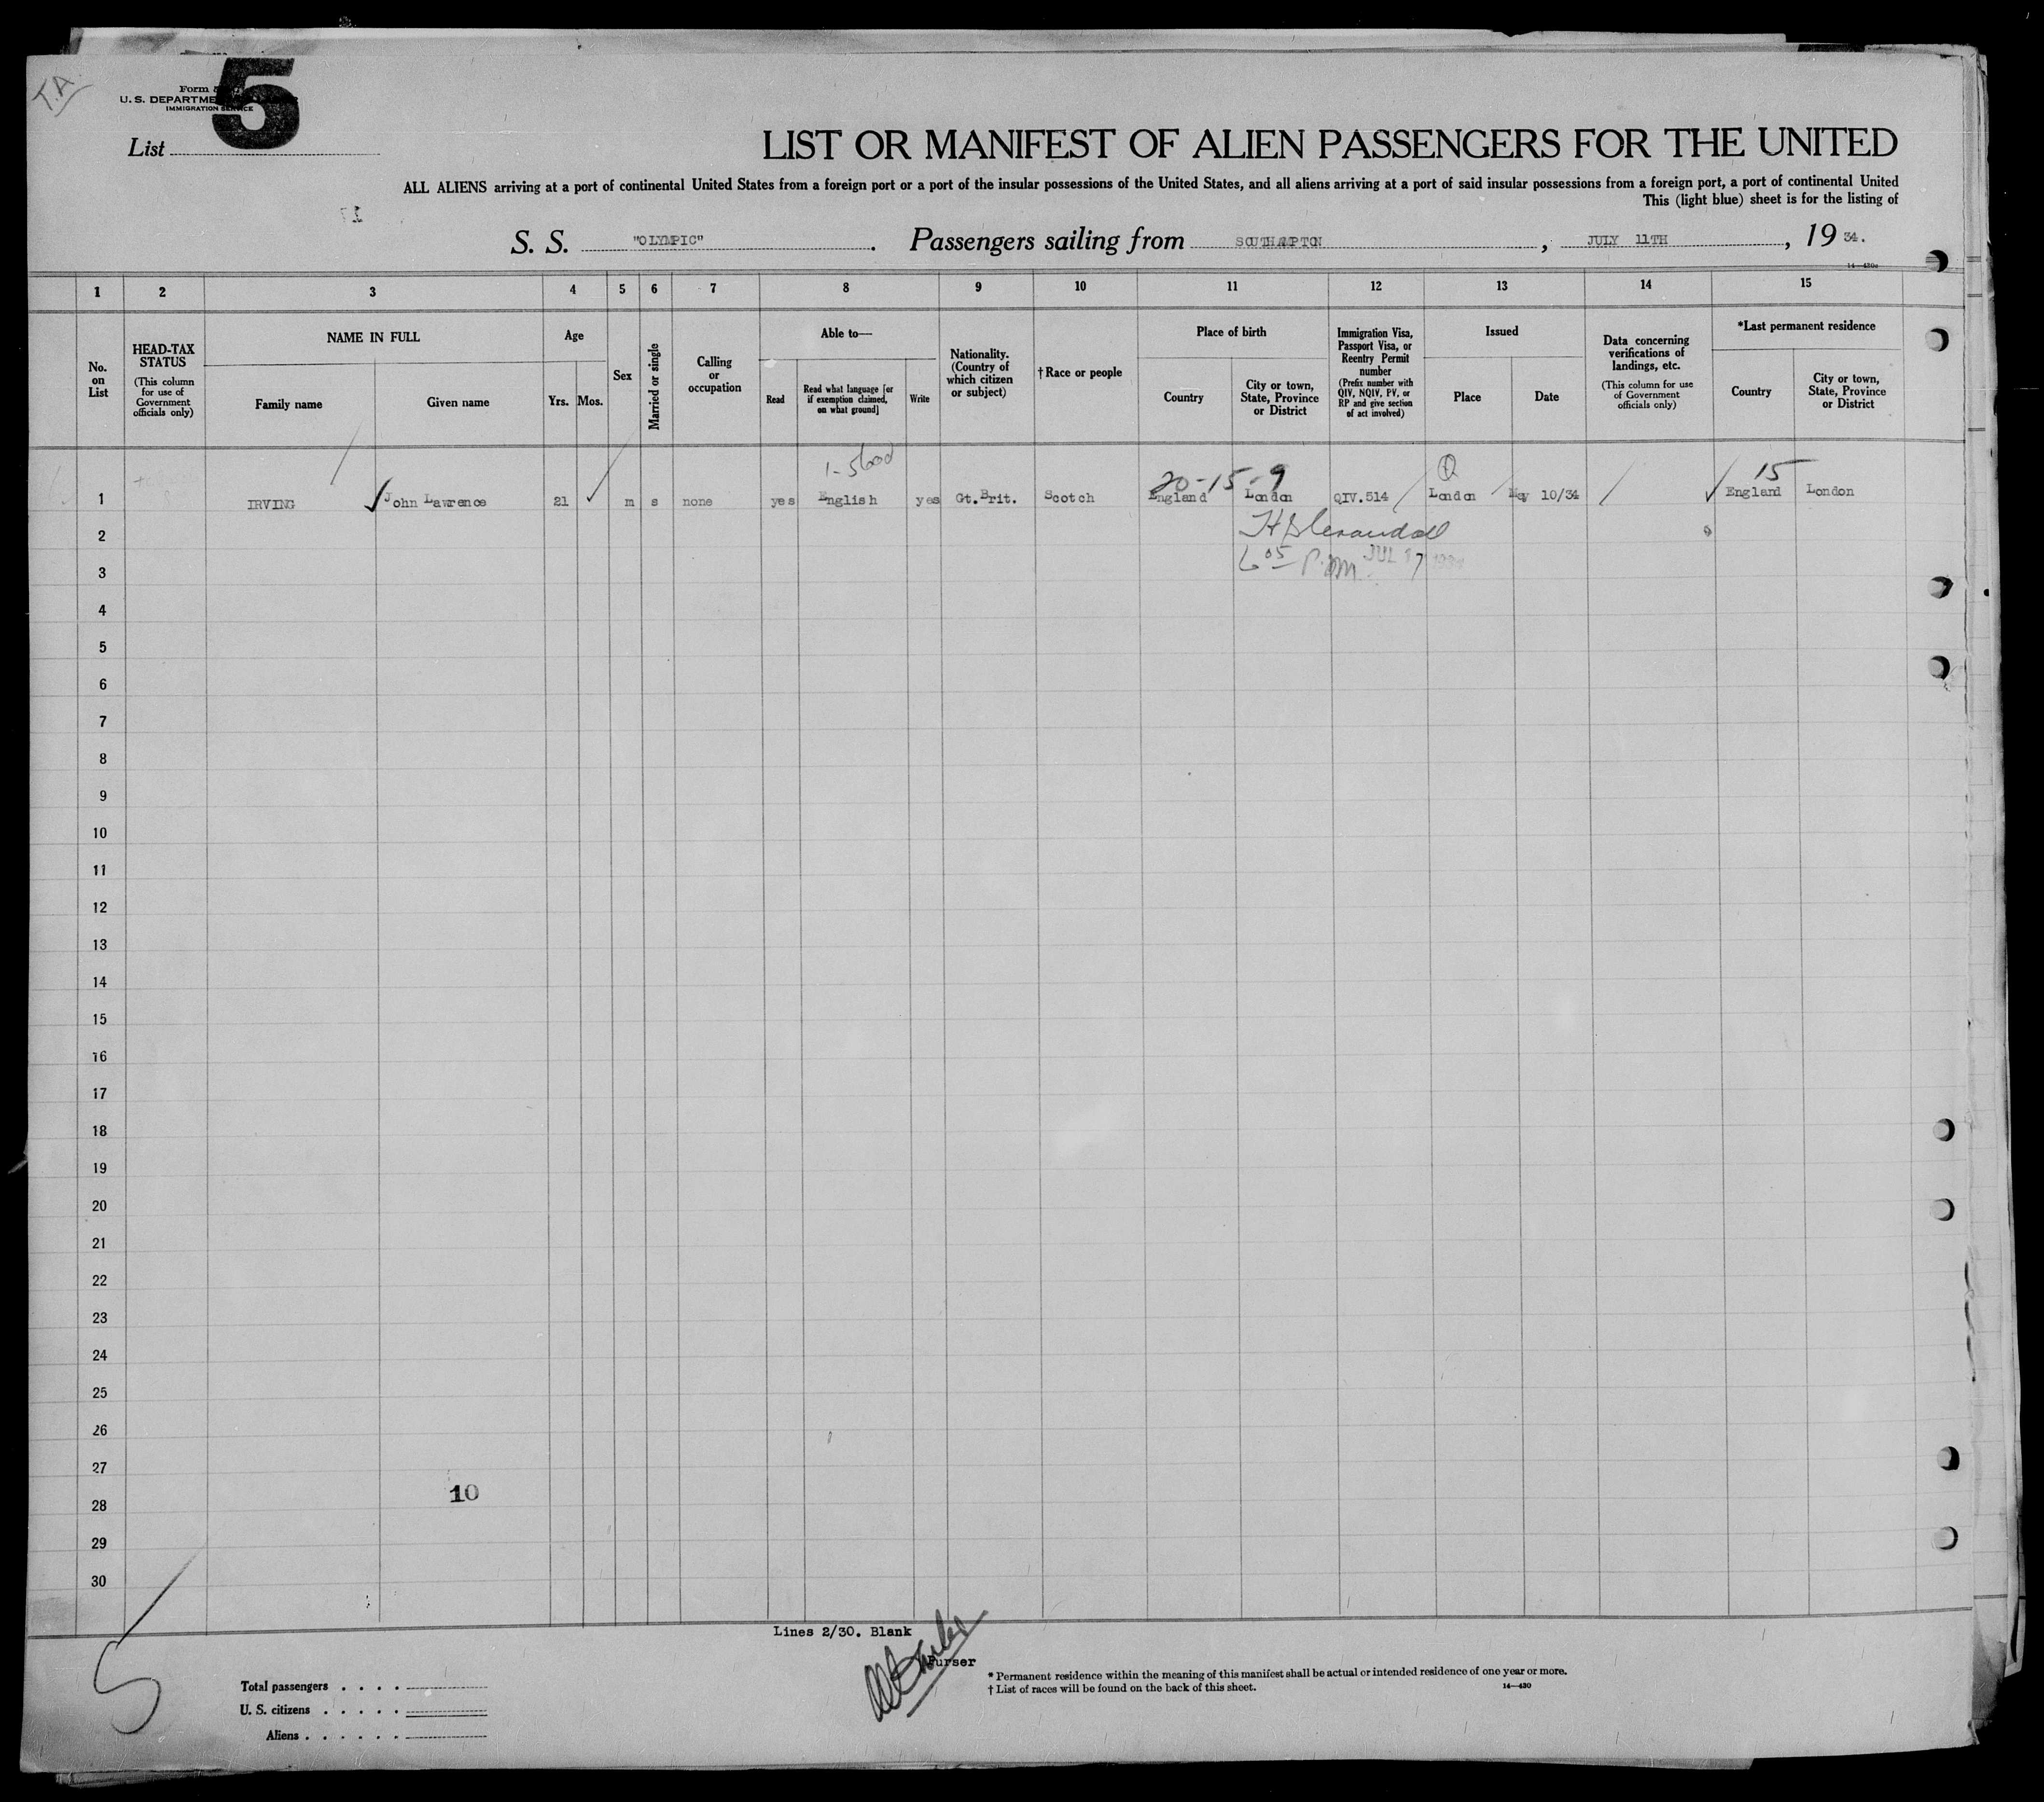 T.A.
Form 5
U. S. DEPARTME
IMMIGRATION SERVICE
5
List
LIST OR MANIFEST OF ALIEN PASSENGERS FOR THE UNITED
ALL ALIENS arriving at a port of continental United States from a foreign port or a port of the insular possessions of the United States, and all aliens arriving at a port of said insular possessions from a foreign port, a port of continental United
This (light blue) sheet is for the listing of
S. S. "OLYMPIC". Passengers sailing from SOUTHAMPTON, JULY 11TH, 1934.
1 2 3 4 5 6 7 8 9 10 11 12 13 14 15
No. on List
HEAD-TAX STATUS
(This column for use of Government officials only)
NAME IN FULL
Family name
Given name
Age
Yrs. Mos.
Sex
Married or single
Calling or occupation
Able to—
Read
Read what language [or if exemption claimed, on what ground]
Write
Nationality. (Country of which citizen or subject)
†Race or people
Place of birth
Country
City or town, State, Province or District
Immigration Visa, Passport Visa, or Reentry Permit number
(Prefix number with QIV, NQIV, PV, or RP and give section of act involved)
Issued
Place
Date
Data concerning verifications of landings, etc.
(This column for use of Government officials only)
*Last permanent residence
Country
City or town, State, Province or District
20-15-9 Q 15
1 IRVING John Lawrence 21 m s none yes English yes Gt.Brit. Scotch England London QIV.514 London May 10/34 England London
2
3 6 05 P.M. JUL 17 1934
4
5
6
7
8
9
10
11
12
13
14
15
16
17
18
19
20
21
22
23
24
25
26
27
10
28
29
30
Lines 2/30. Blank
Purser
5
Total passengers . . . .
U. S. citizens . . . . .
Aliens . . . . . .
* Permanent residence within the meaning of this manifest shall be actual or intended residence of one year or more.
† List of races will be found on the back of this sheet.
14—430